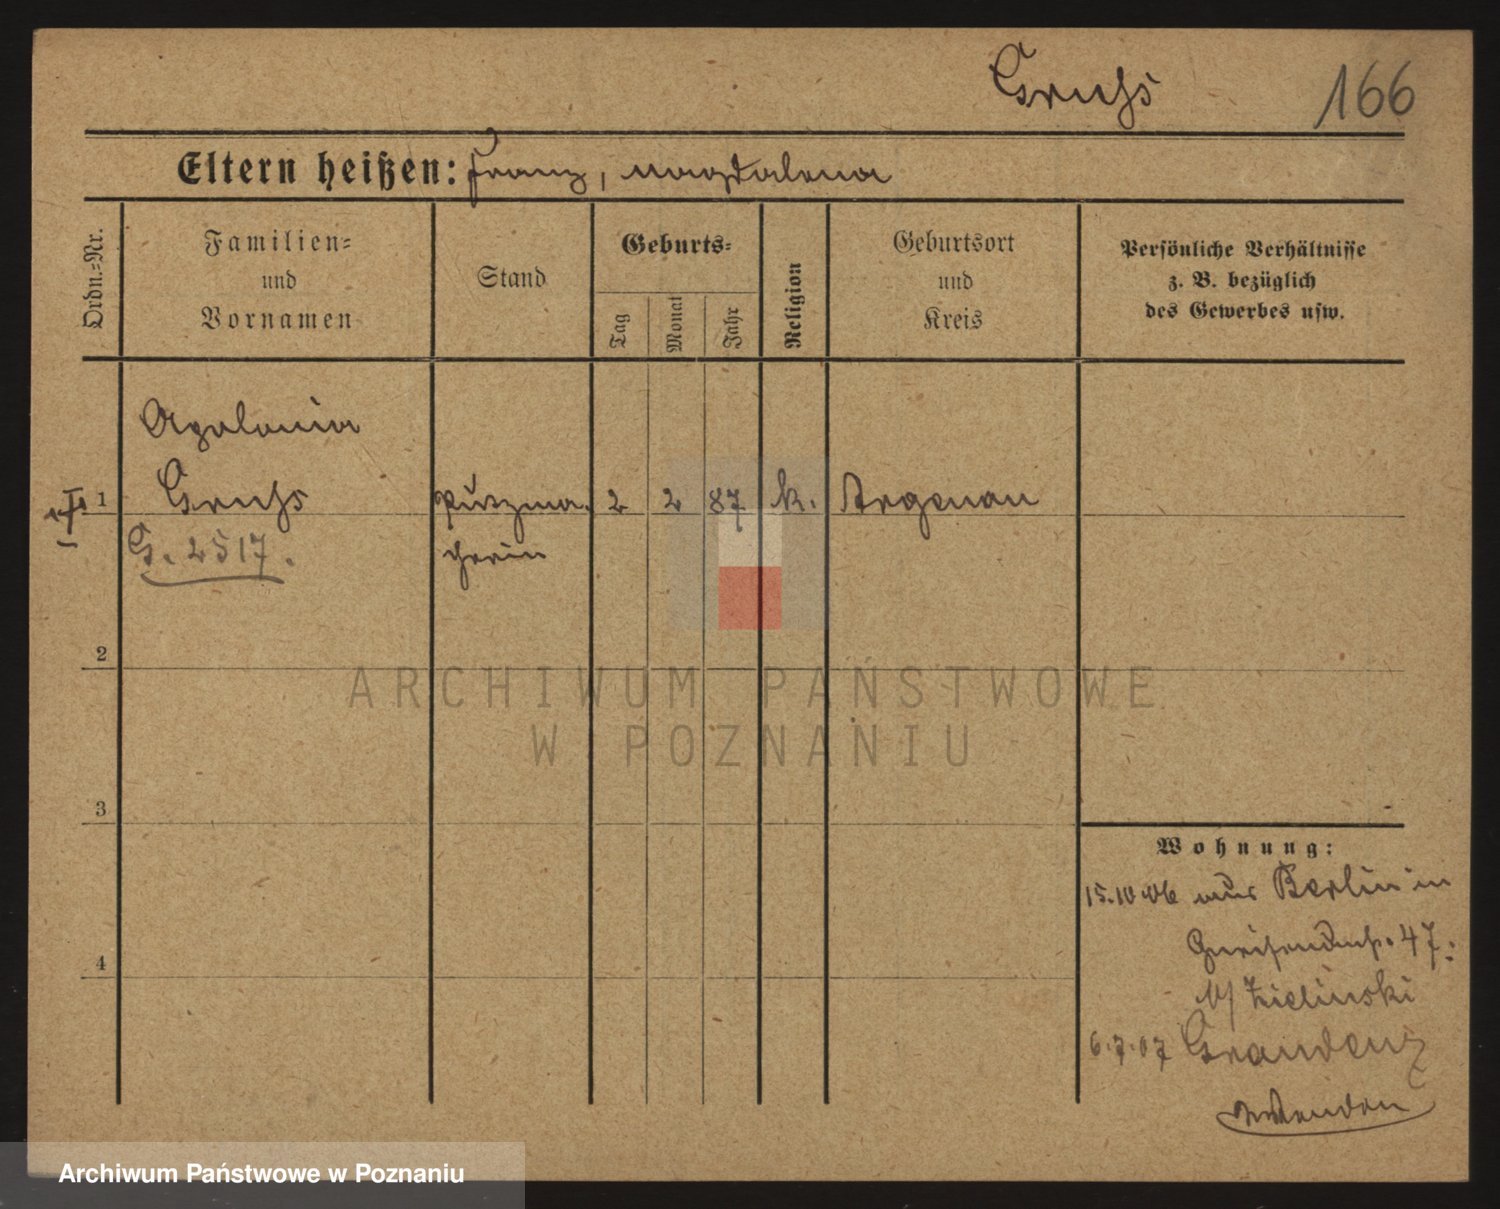 Gruhs 166
Eltern heißen: Franz, Magdalena
Ordn.=Nr.
Familien=
und
Vornamen
Stand
Geburts=
Tag
Monat
Jahr
Religion
Geburtsort
und
Kreis
Persönliche Verhältnisse
z. B. bezüglich
des Gewerbes usw.
Apolonia
1 Gruhs Putzma- 2 2 87 k. Argenau
G. 2517. cherin
2
3
4
Wohnung:
15.10.06 aus Berlin in
47.
b/ Zielinski
6.7.07 Graudenz
ARCHIWUM PAŃSTWOWE
W POZNANIU
Archiwum Państwowe w Poznaniu